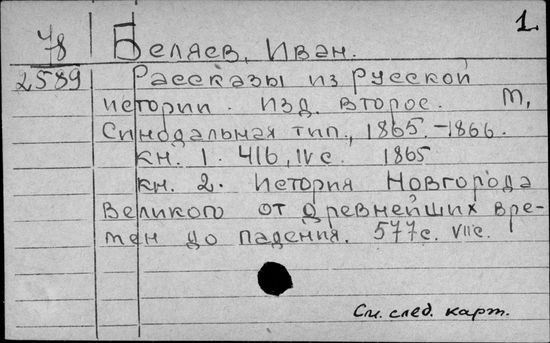 1.
78 Беляев, Иван.
2589 Рассказы из русской
истории. Изд. второе. М,
Синодальная тип., 1865.-1866.
кн. 1. 416, IV с. 1865
кн. 2. История Новгорода
Великого от древнейших вре-
мен до падения. 577с. VIIс.
См. след. карт.